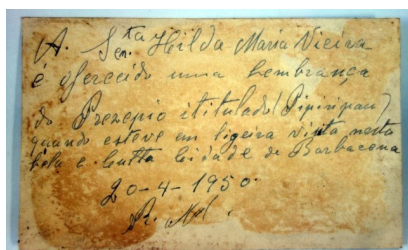 A. Senta Hilda Maria Vieira
é oferecido uma Lembrança
do Prezepio ititulado (Pipiripau)
quando esteve em ligeira visita nesta
bela e Cutta Cidade de Barbacena
20-4-1950.